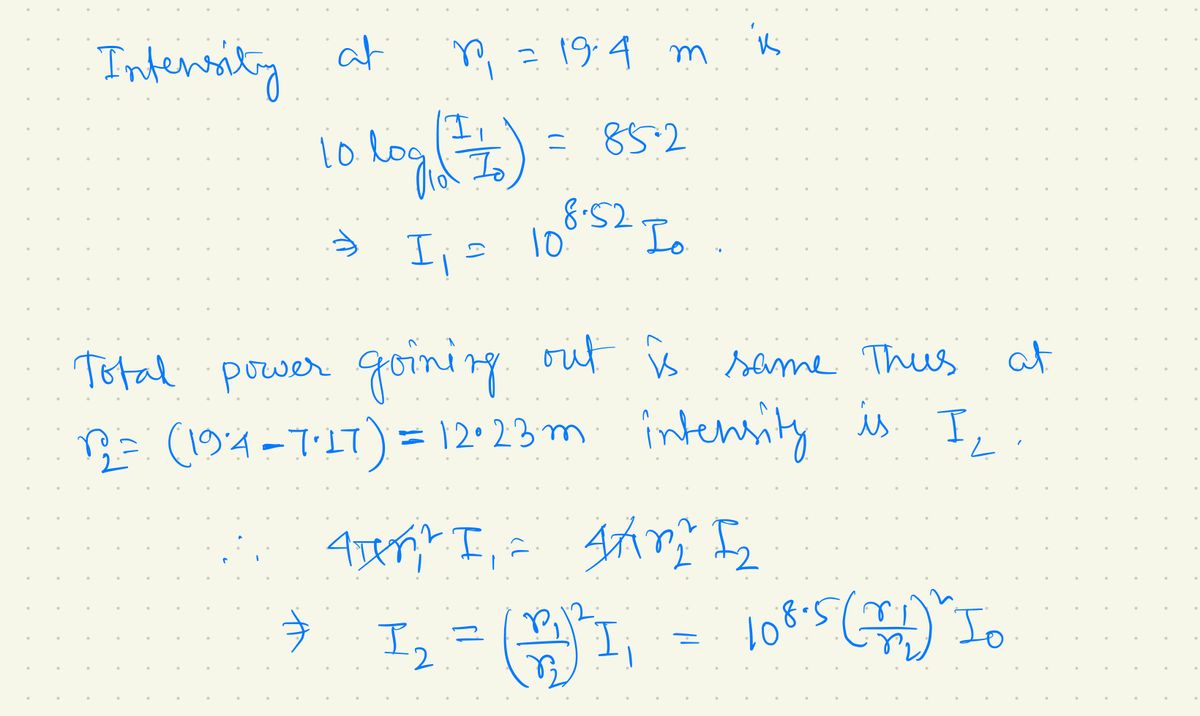 Intensity at r₁ = 19.4 m is
10 log₁₀(I₁/I₀) = 85.2
⇒ I₁ = 10^8.52 I₀ .
Total power goining out is same Thus at
r₂ = (19.4 - 7.17) = 12.23 m intensity is I₂ .
∴ 4πr₁² I₁ = 4πr₂² I₂
⇒ I₂ = (r₁/r₂)² I₁ = 10^8.5 (r₁/r₂)² I₀